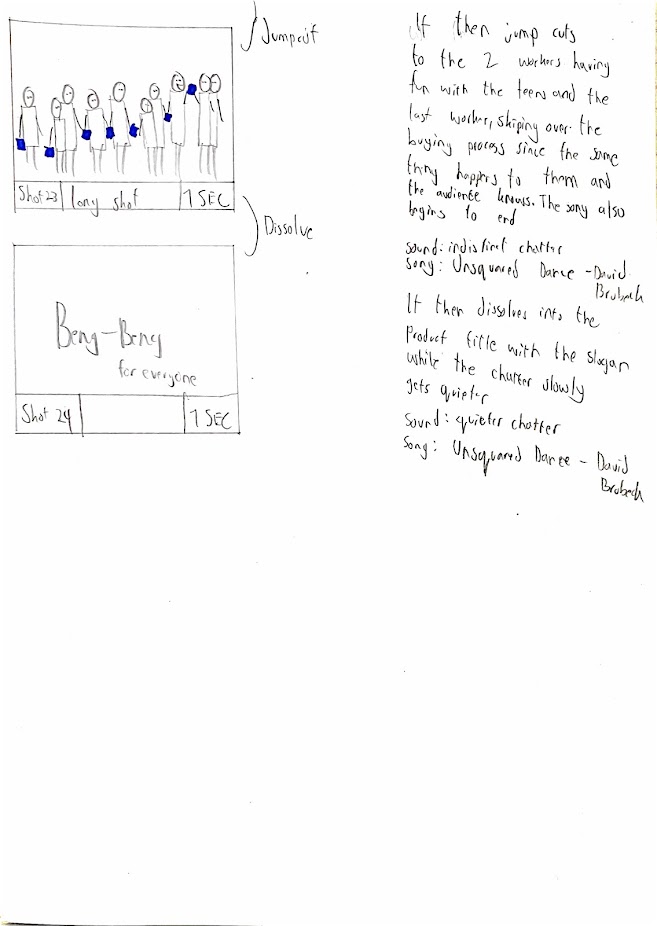 Jumpcut
Shot 23
long shot
1 SEC
Dissolve
Beng-Beng
for everyone
Shot 24
1 SEC
It then jump cuts
to the 2 workers having
fun with the teens and the
last worker, skiping over the
buying process since the same
thing happens to them and
the audience knows. The song also
begins to end
sound: indistinct chatter
song: Unsquared Dance - David
Brubeck
It then dissolves into the
product title with the slogan
while the chatter slowly
gets quieter
sound: quieter chatter
song: Unsquared Dance - David
Brubeck